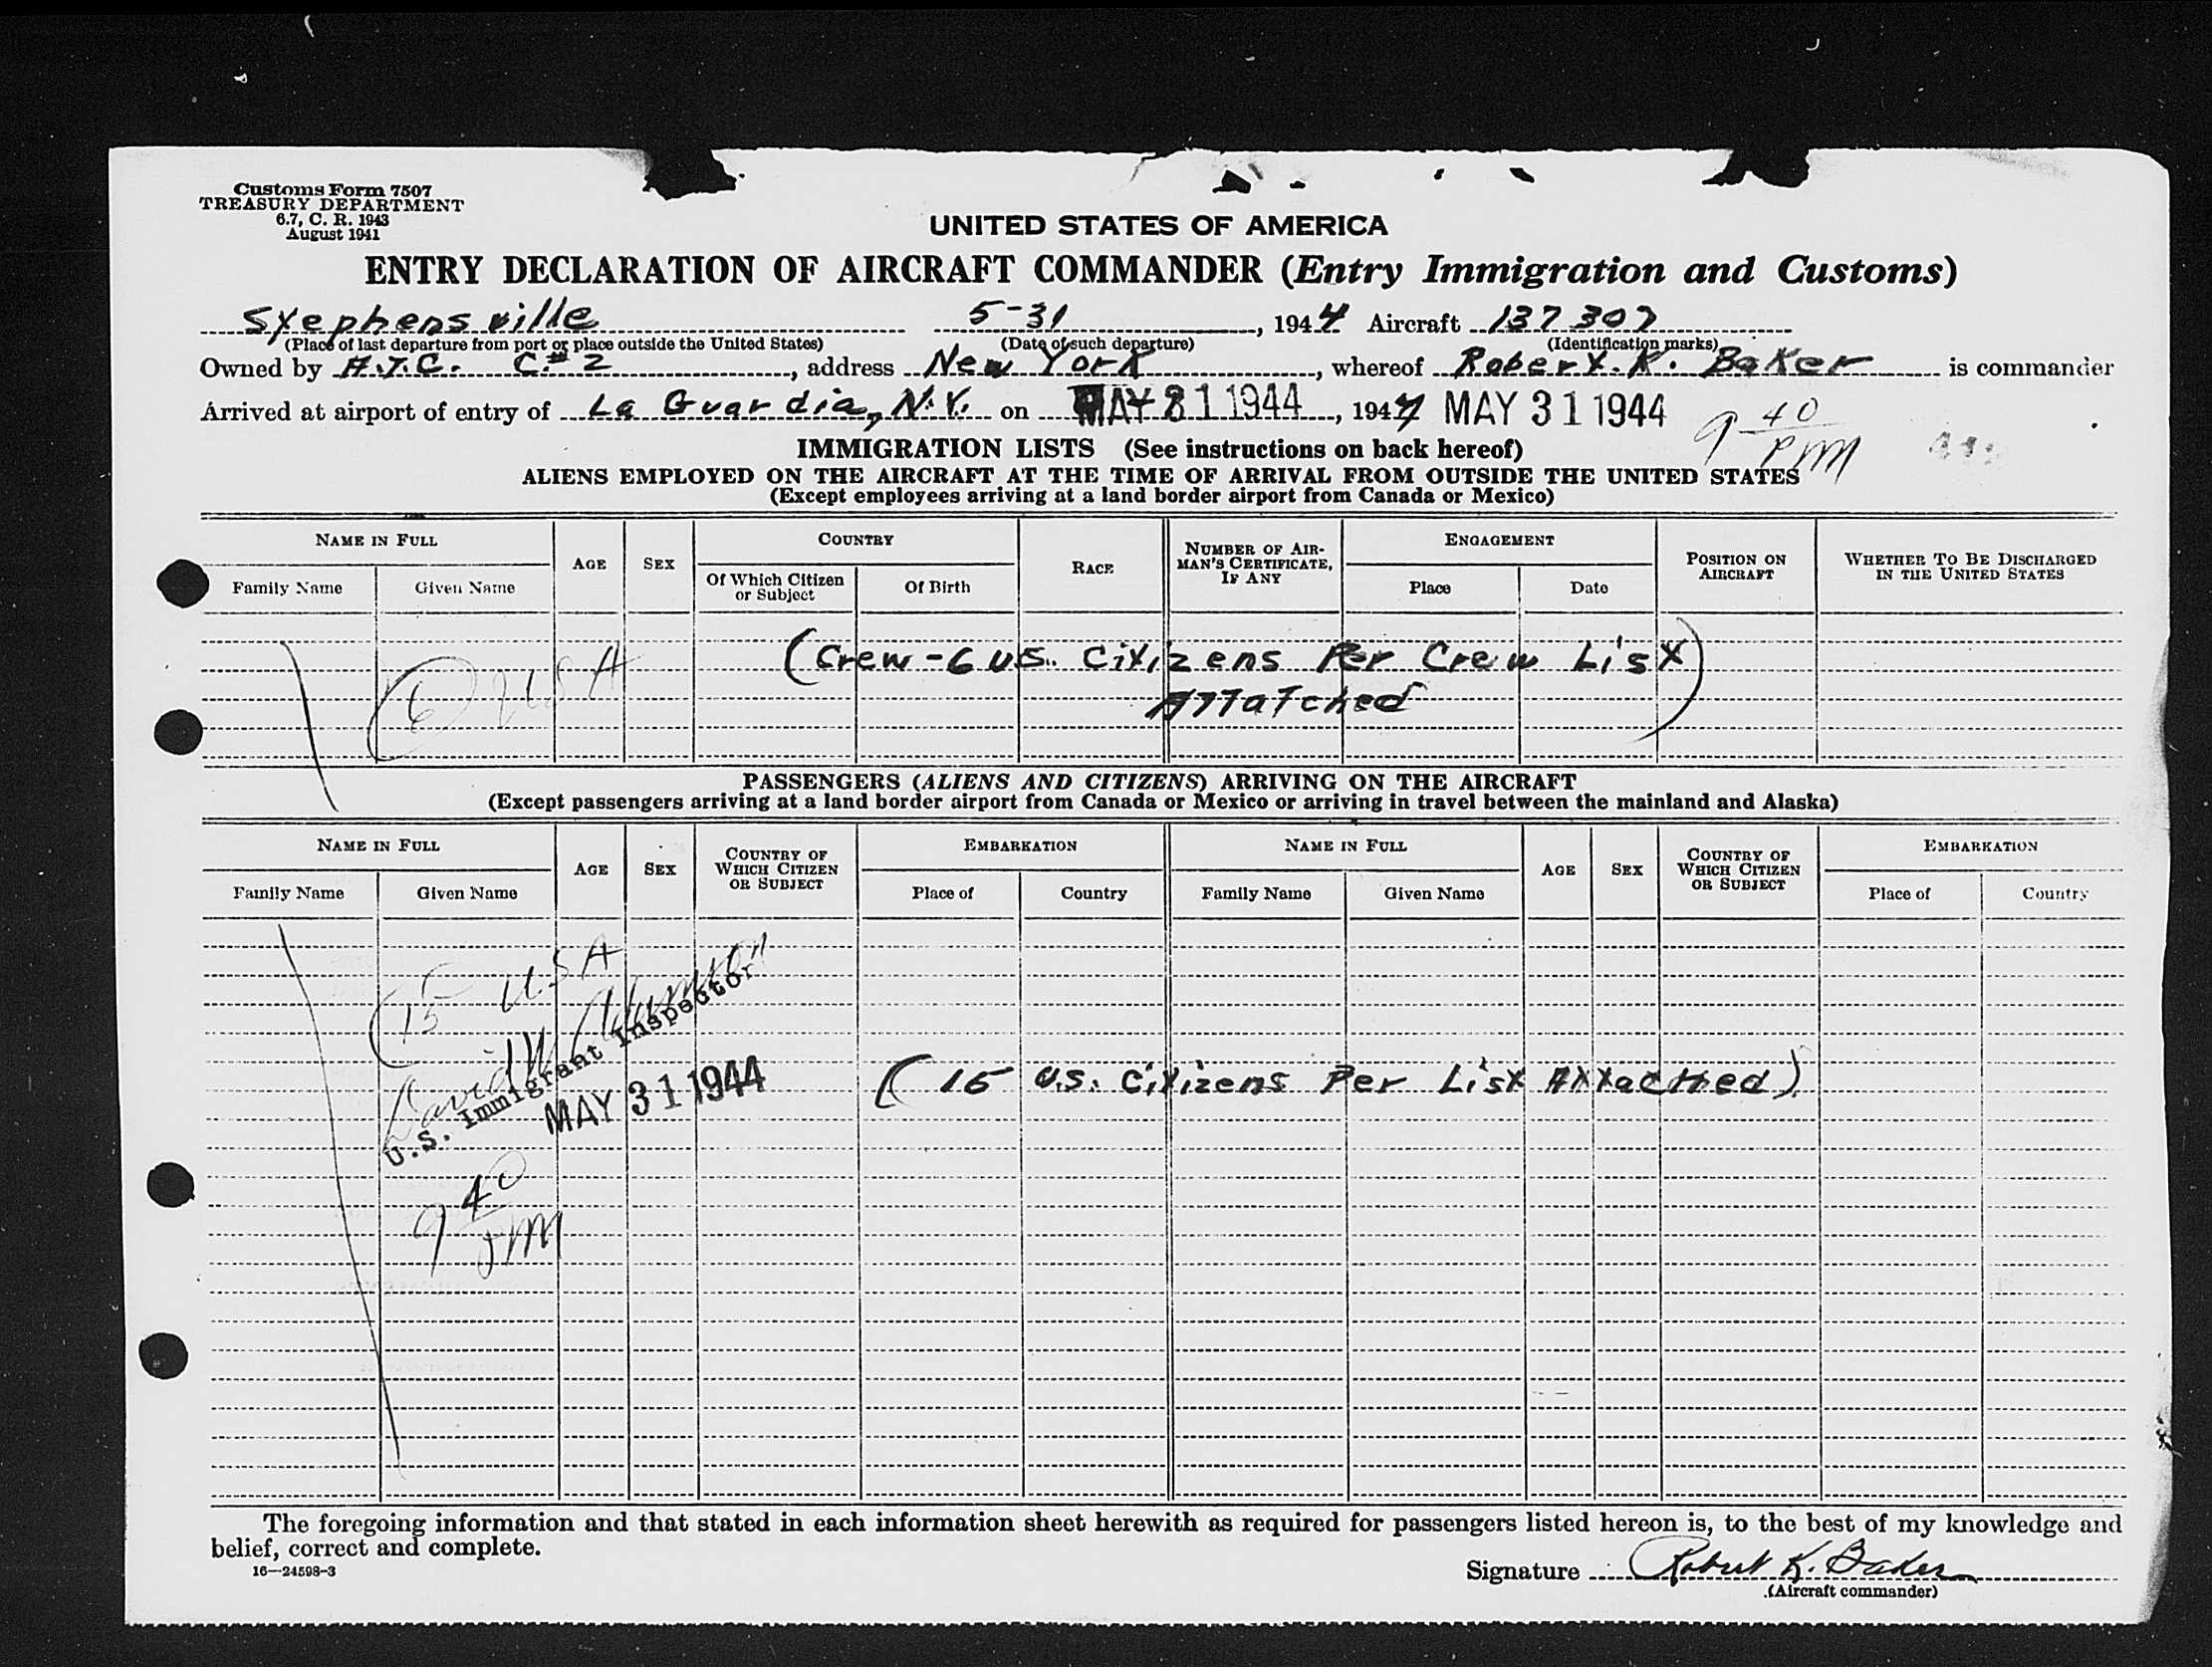 Customs Form 7507
TREASURY DEPARTMENT
6.7, C. R. 1943
August 1941
UNITED STATES OF AMERICA
ENTRY DECLARATION OF AIRCRAFT COMMANDER (Entry Immigration and Customs)
Stephensville 5-31, 1944 Aircraft 137307
(Place of last departure from port or place outside the United States) (Date of such departure) (Identification marks)
Owned by A.T.C. C.#2, address New York, whereof Robert. K. Baker is commander
Arrived at airport of entry of La Guardia, N.Y. on MAY 31 1944, 1944 MAY 31 1944 9 40 PM
IMMIGRATION LISTS (See instructions on back hereof)
ALIENS EMPLOYED ON THE AIRCRAFT AT THE TIME OF ARRIVAL FROM OUTSIDE THE UNITED STATES
(Except employees arriving at a land border airport from Canada or Mexico)
NAME IN FULL AGE SEX COUNTRY RACE NUMBER OF AIRMAN'S CERTIFICATE, IF ANY ENGAGEMENT POSITION ON AIRCRAFT WHETHER TO BE DISCHARGED IN THE UNITED STATES
Family Name Given Name Of Which Citizen or Subject Of Birth Place Date
(Crew - 6 U.S. Citizens Per Crew List
6 USA
Attatched)
PASSENGERS (ALIENS AND CITIZENS) ARRIVING ON THE AIRCRAFT
(Except passengers arriving at a land border airport from Canada or Mexico or arriving in travel between the mainland and Alaska)
NAME IN FULL AGE SEX COUNTRY OF WHICH CITIZEN OR SUBJECT EMBARKATION NAME IN FULL AGE SEX COUNTRY OF WHICH CITIZEN OR SUBJECT EMBARKATION
Family Name Given Name Place of Country Family Name Given Name Place of Country
15 USA
David W
U.S. Immigrant Inspector
MAY 31 1944
(15 U.S. Citizens Per List Attached)
9 40 PM
The foregoing information and that stated in each information sheet herewith as required for passengers listed hereon is, to the best of my knowledge and
belief, correct and complete.
16—24598-3
Signature Robert K. Baker
(Aircraft commander)